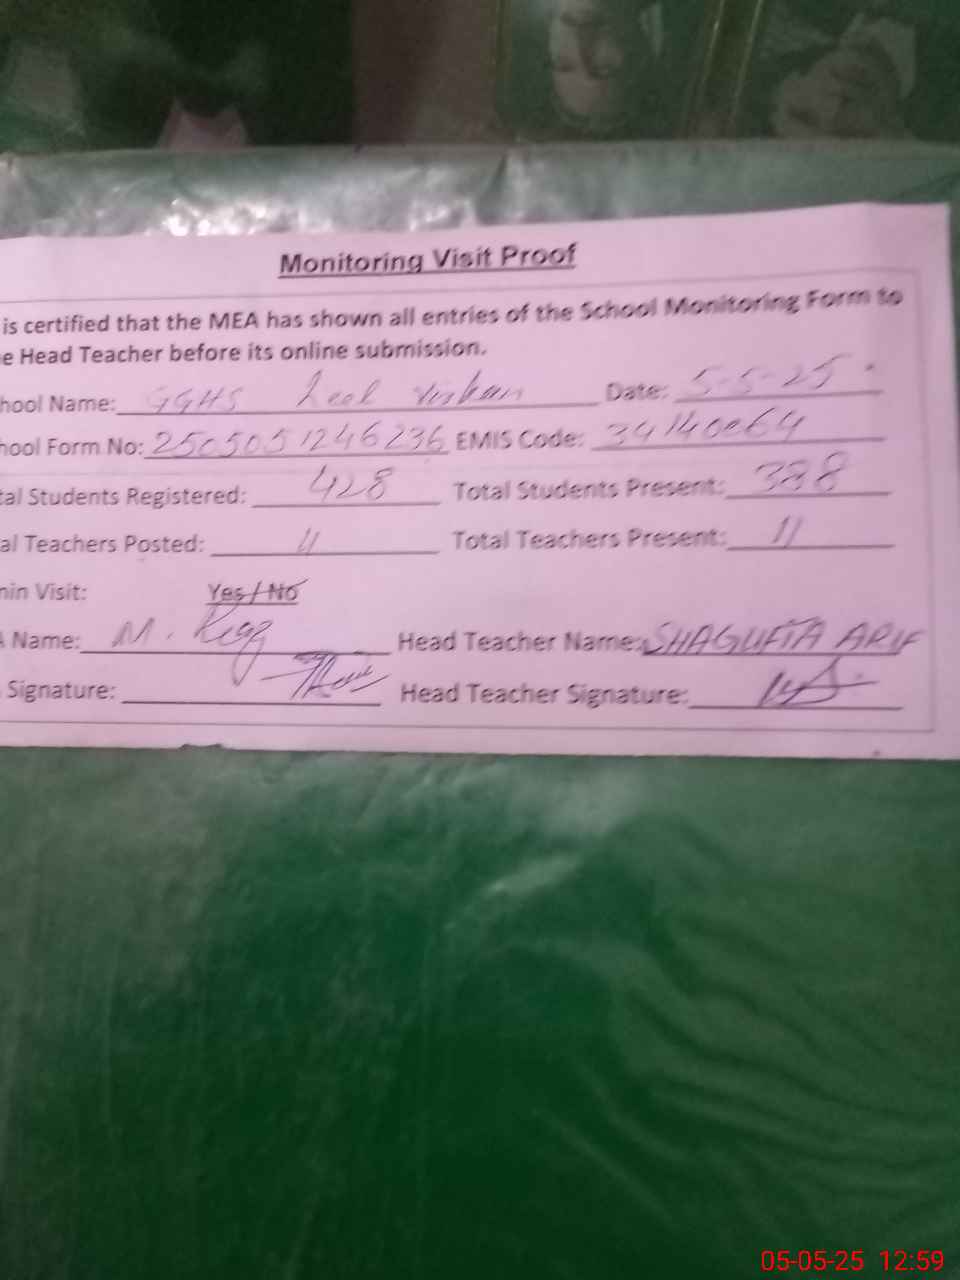 Monitoring Visit Proof
is certified that the MEA has shown all entries of the School Monitoring Form to
e Head Teacher before its online submission.
hool Name: GGHS Date: 5-5-25
hool Form No: 2505051246236 EMIS Code: 34140064
tal Students Registered: 428 Total Students Present: 388
al Teachers Posted: 11 Total Teachers Present: 11
min Visit: Yes / No
A Name: M. Head Teacher Name: SHAGUFTA ARIF
Signature: Head Teacher Signature:
05-05-25 12:59